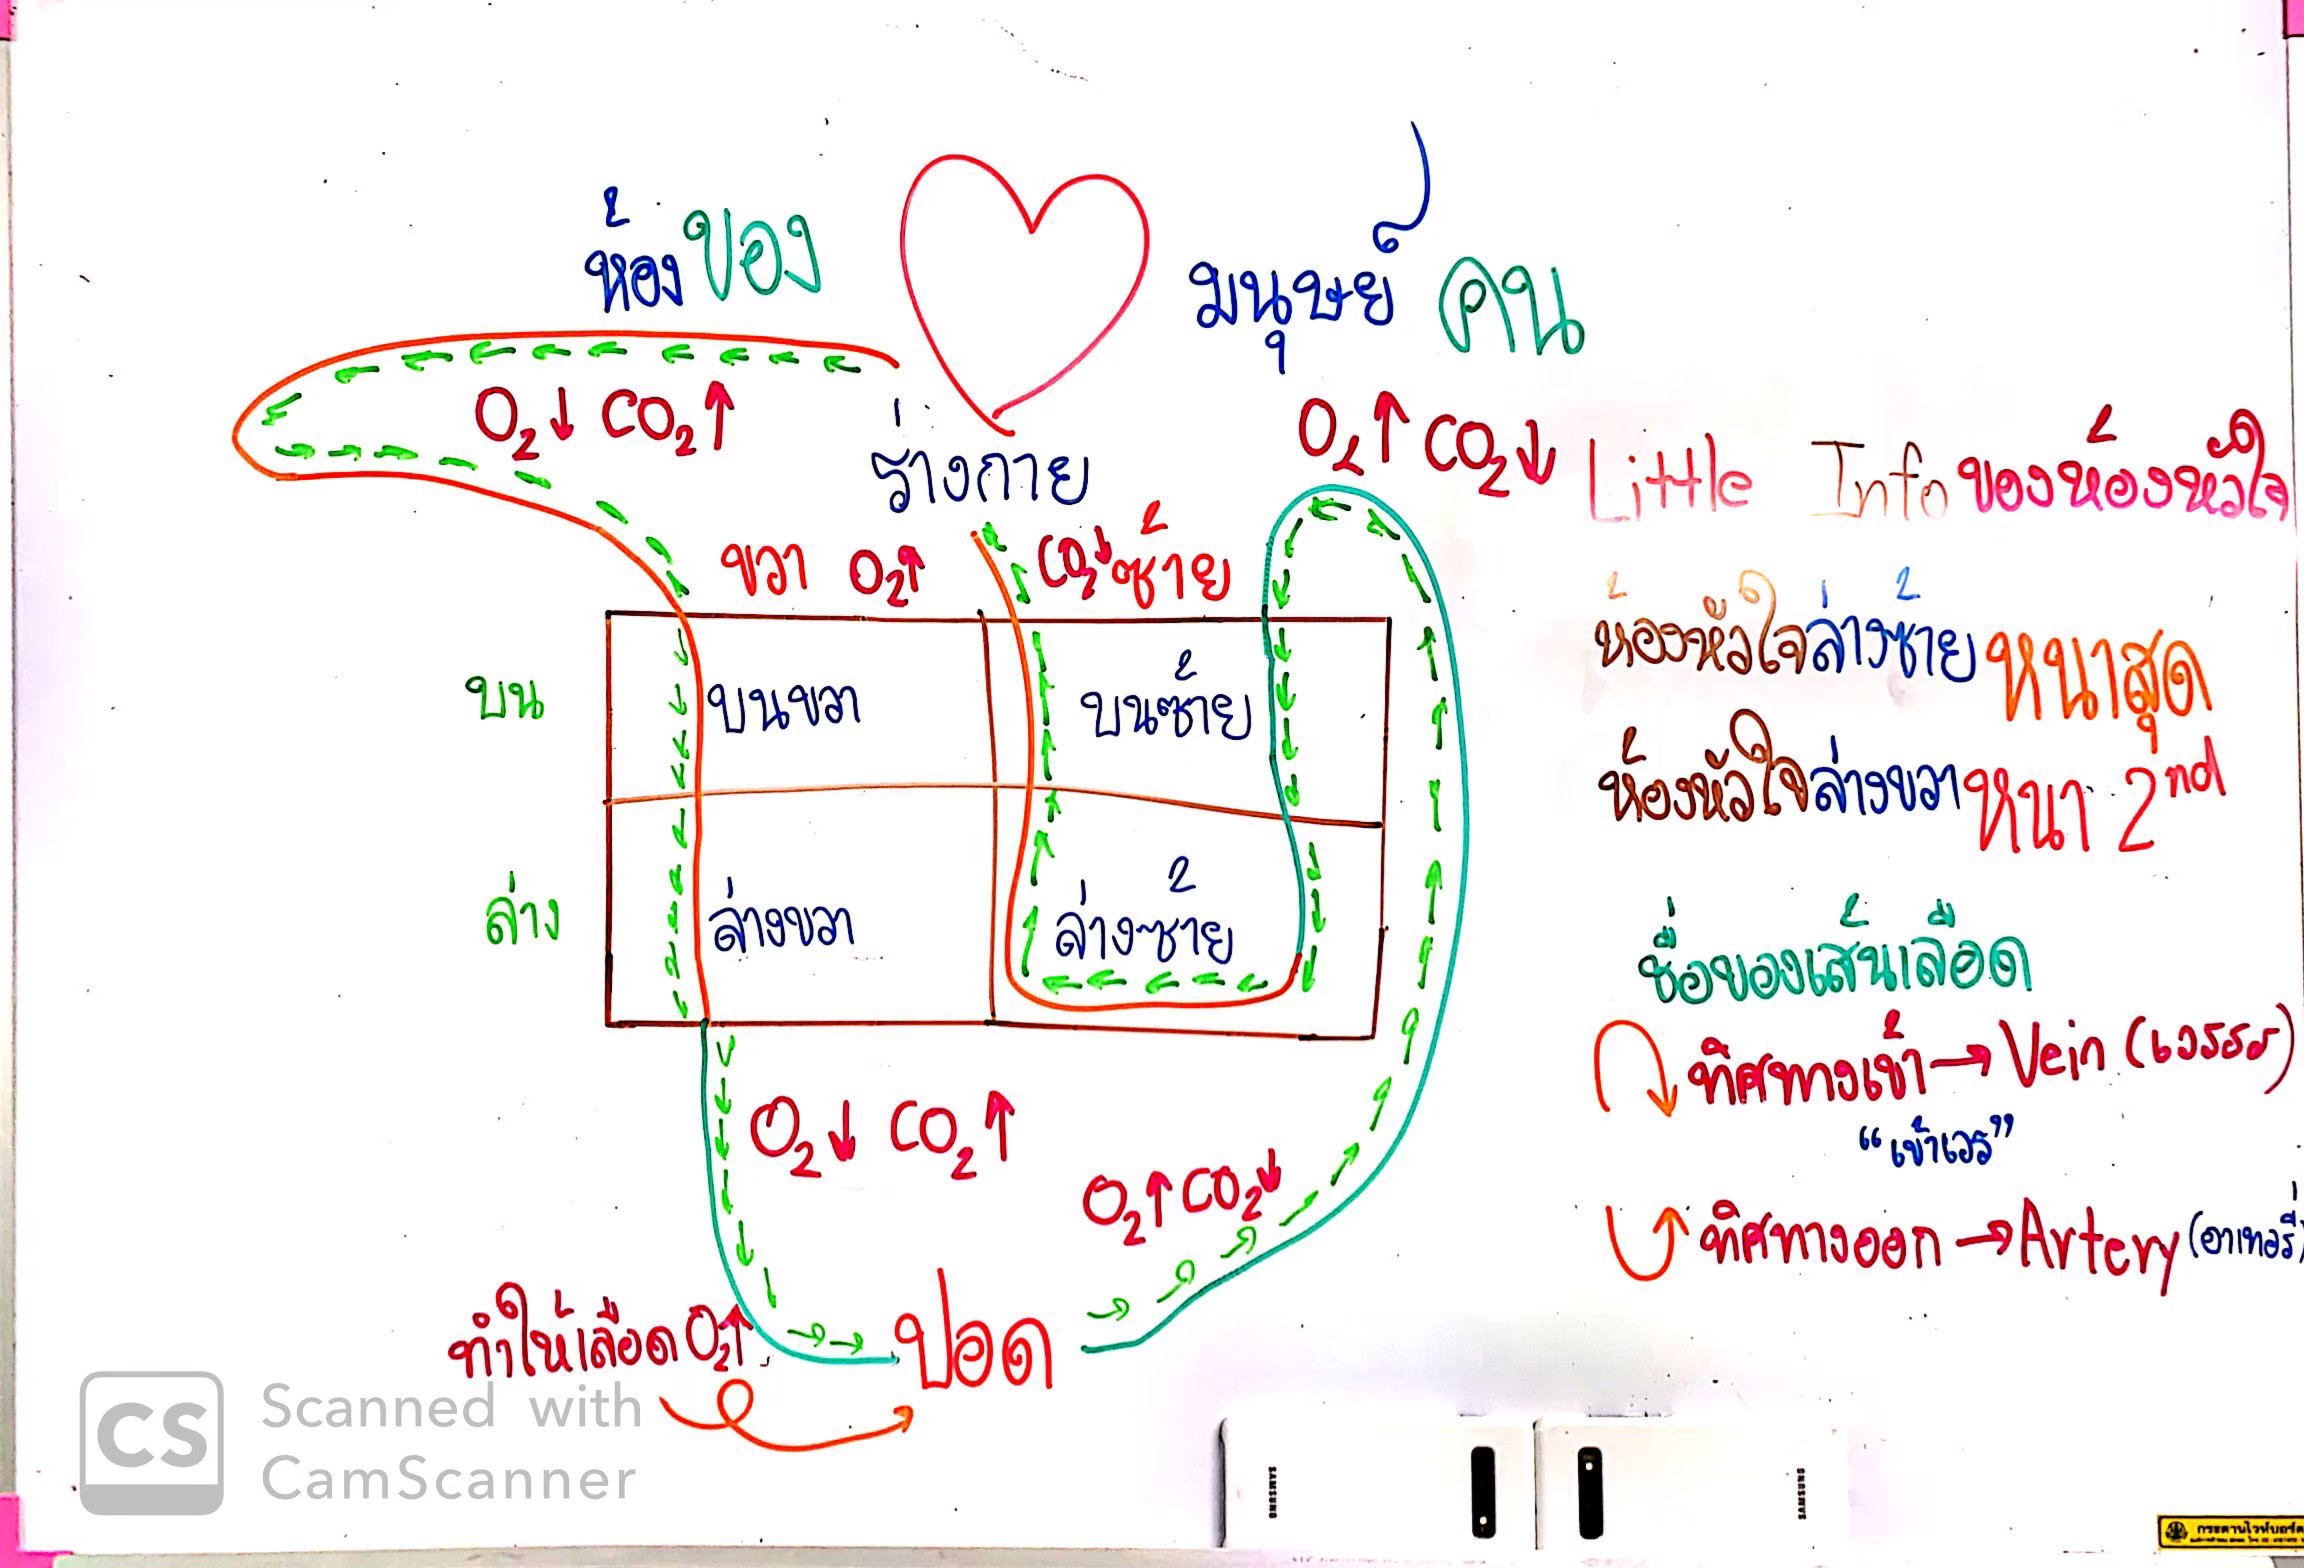 ห้องของ มนุษย์ คน
O₂↓ CO₂↑
ร่างกาย
O₂↑ CO₂↓
ขวา O₂↑ CO₂↓ ซ้าย
บน บนขวา บนซ้าย
ล่าง ล่างขวา ล่างซ้าย
O₂↓ CO₂↑
O₂↑ CO₂↓
ทำให้เลือด O₂↑ ปอด
Little Info ของห้องหัวใจ
ห้องหัวใจล่างซ้าย หนาสุด
ห้องหัวใจล่างขวา หนา 2nd
ชื่อของเส้นเลือด
ทิศทางเข้า → Vein (เวรรร)
“เข้าเวร”
ทิศทางออก → Artery (อาเทอรี่)
CS Scanned with
CamScanner
SAMSUNG
SAMSUNG
กระดานไวท์บอร์ด